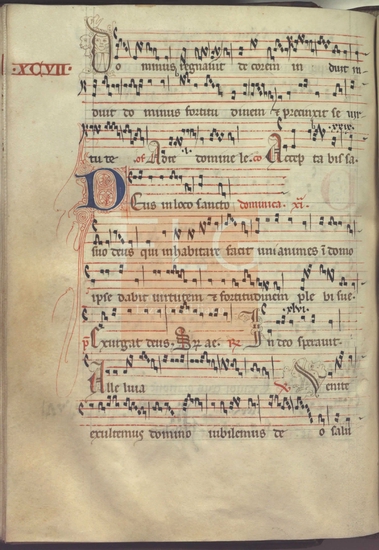 ·XCVII·
Dominus regnavit decorem in duit in
duit dominus fortitu dinem & precinxit se vir
tute of Ad te domine le. co Accep ta bis sa.
Deus in loco sancto dominica. xi.
suo deus qui inhabitare facit unanimes i domo
ipse dabit virtutem & fortitudinem ple bi sue.
ps Exurgat deus. In deo speravit.
Alleluia Venite
exultemus domino iubilemus deo salu